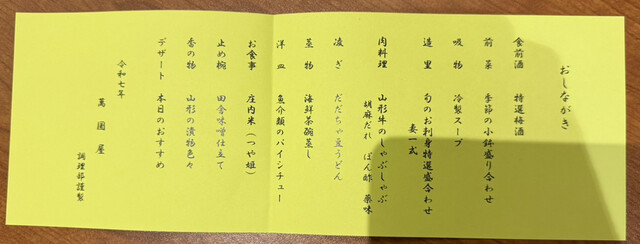 おしながき
食前酒　特選梅酒
前菜　季節の小鉢盛り合わせ
吸物　冷製スープ
造里　旬のお刺身特選盛合わせ
妻一式
肉料理　山形牛のしゃぶしゃぶ
胡麻だれ　ぽん酢　薬味
凌ぎ　だだちゃ豆うどん
蒸物　海鮮茶碗蒸し
洋皿　魚介類のパイシチュー
お食事　庄内米（つや姫）
止め椀　田舎味噌仕立て
香の物　山形の漬物色々
デザート　本日のおすすめ
令和七年
萬国屋
調理部謹製